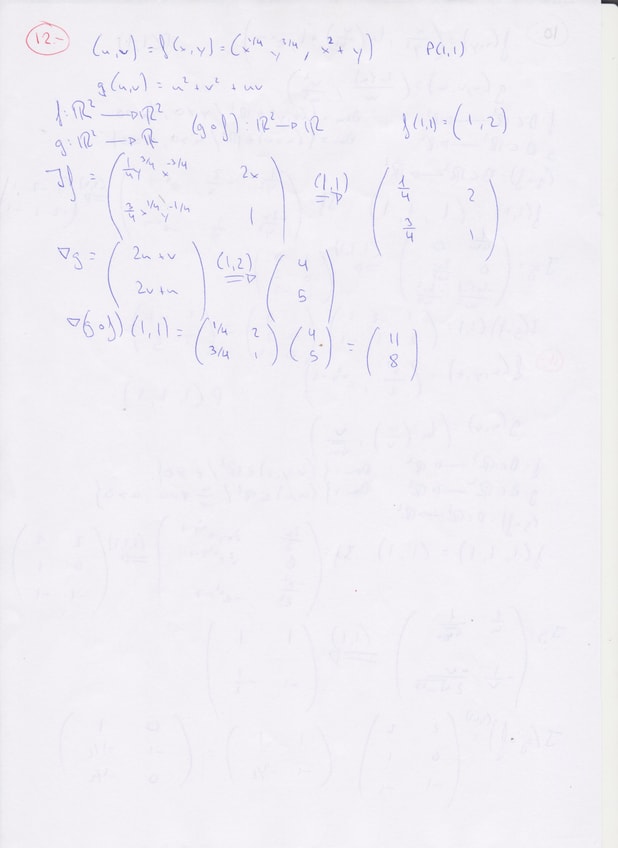 12.- (u,v) = f(x,y) = (x^{1/4} y^{3/4}, x² + y) P(1,1)
g(u,v) = u² + v² + uv
f: ℝ² → ℝ²
g: ℝ² → ℝ (g∘f): ℝ² → ℝ f(1,1) = (1,2)
Jf = ( 1/4 y^{3/4} x^{-3/4} 2x ; 3/4 x^{1/4} y^{-1/4} 1 ) (1,1) ⇒ ( 1/4 2 ; 3/4 1 )
∇g = ( 2u+v ; 2v+u ) (1,2) ⇒ ( 4 ; 5 )
∇(g∘f)(1,1) = ( 1/4 2 ; 3/4 1 ) ( 4 ; 5 ) = ( 11 ; 8 )